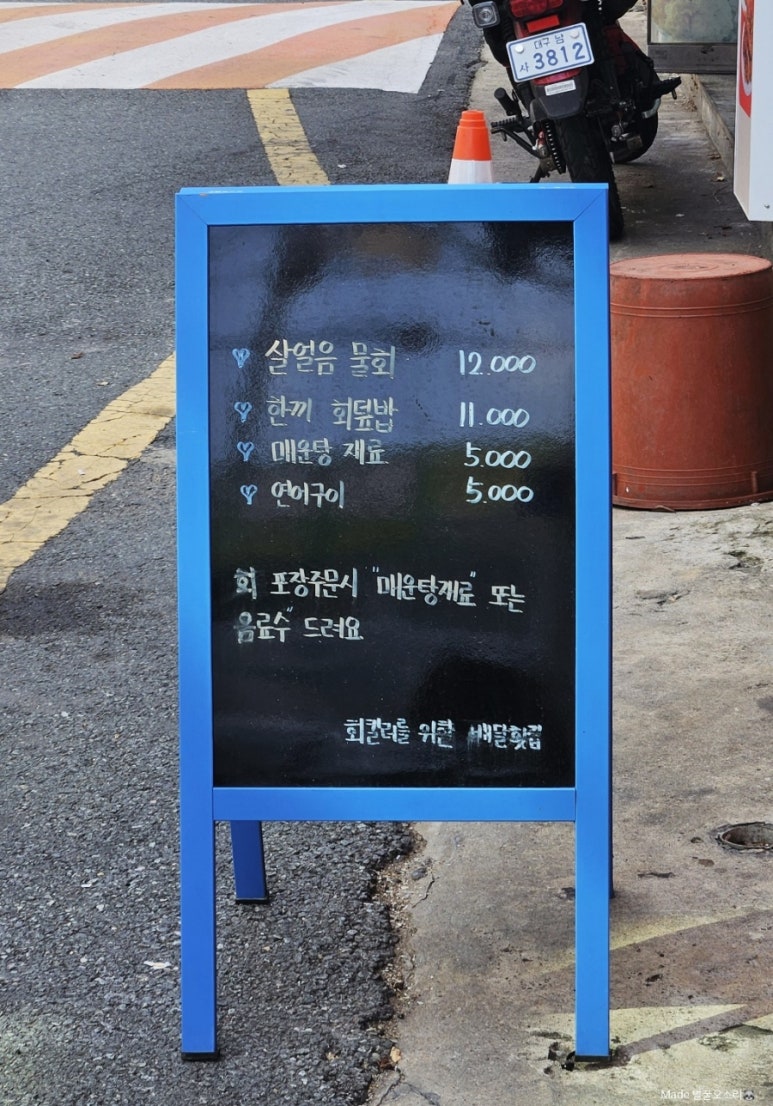 대구 남
사 3812
살얼음 물회 12.000
한끼 회덮밥 11.000
매운탕 재료 5.000
연어구이 5.000
회 포장주문시 "매운탕재료" 또는
음료수" 드려요
회킬러를 위한 배달횟집
Made 별꽃오소리